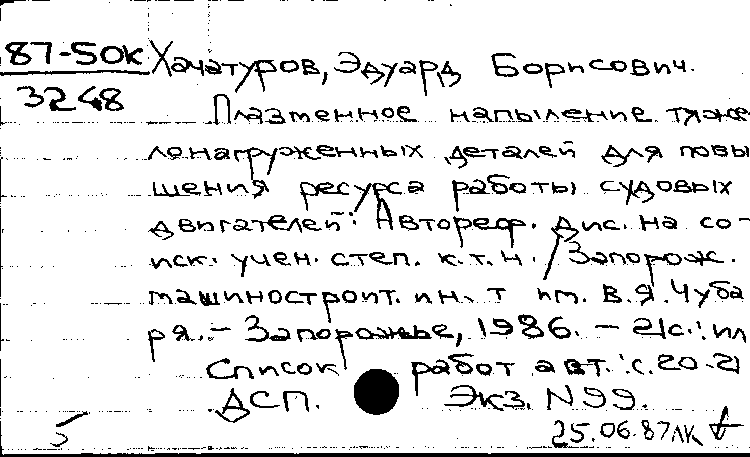 87-50к Хачатуров, Эдуард Борисович.
3248
Плазменное напыление тяже-
лонагруженных деталей для повы-
шения ресурса работы судовых
двигателей: Автореф. дис. на со-
иск. учен. степ. к.т.н. / Запорож.
машиностроит. ин-т им. В.Я. Чуба-
ря. - Запорожье, 1986. - 21с.: ил
Список работ авт.: с. 20-21
ДСП. Экз. N 99.
5 25.06.87 ЛК